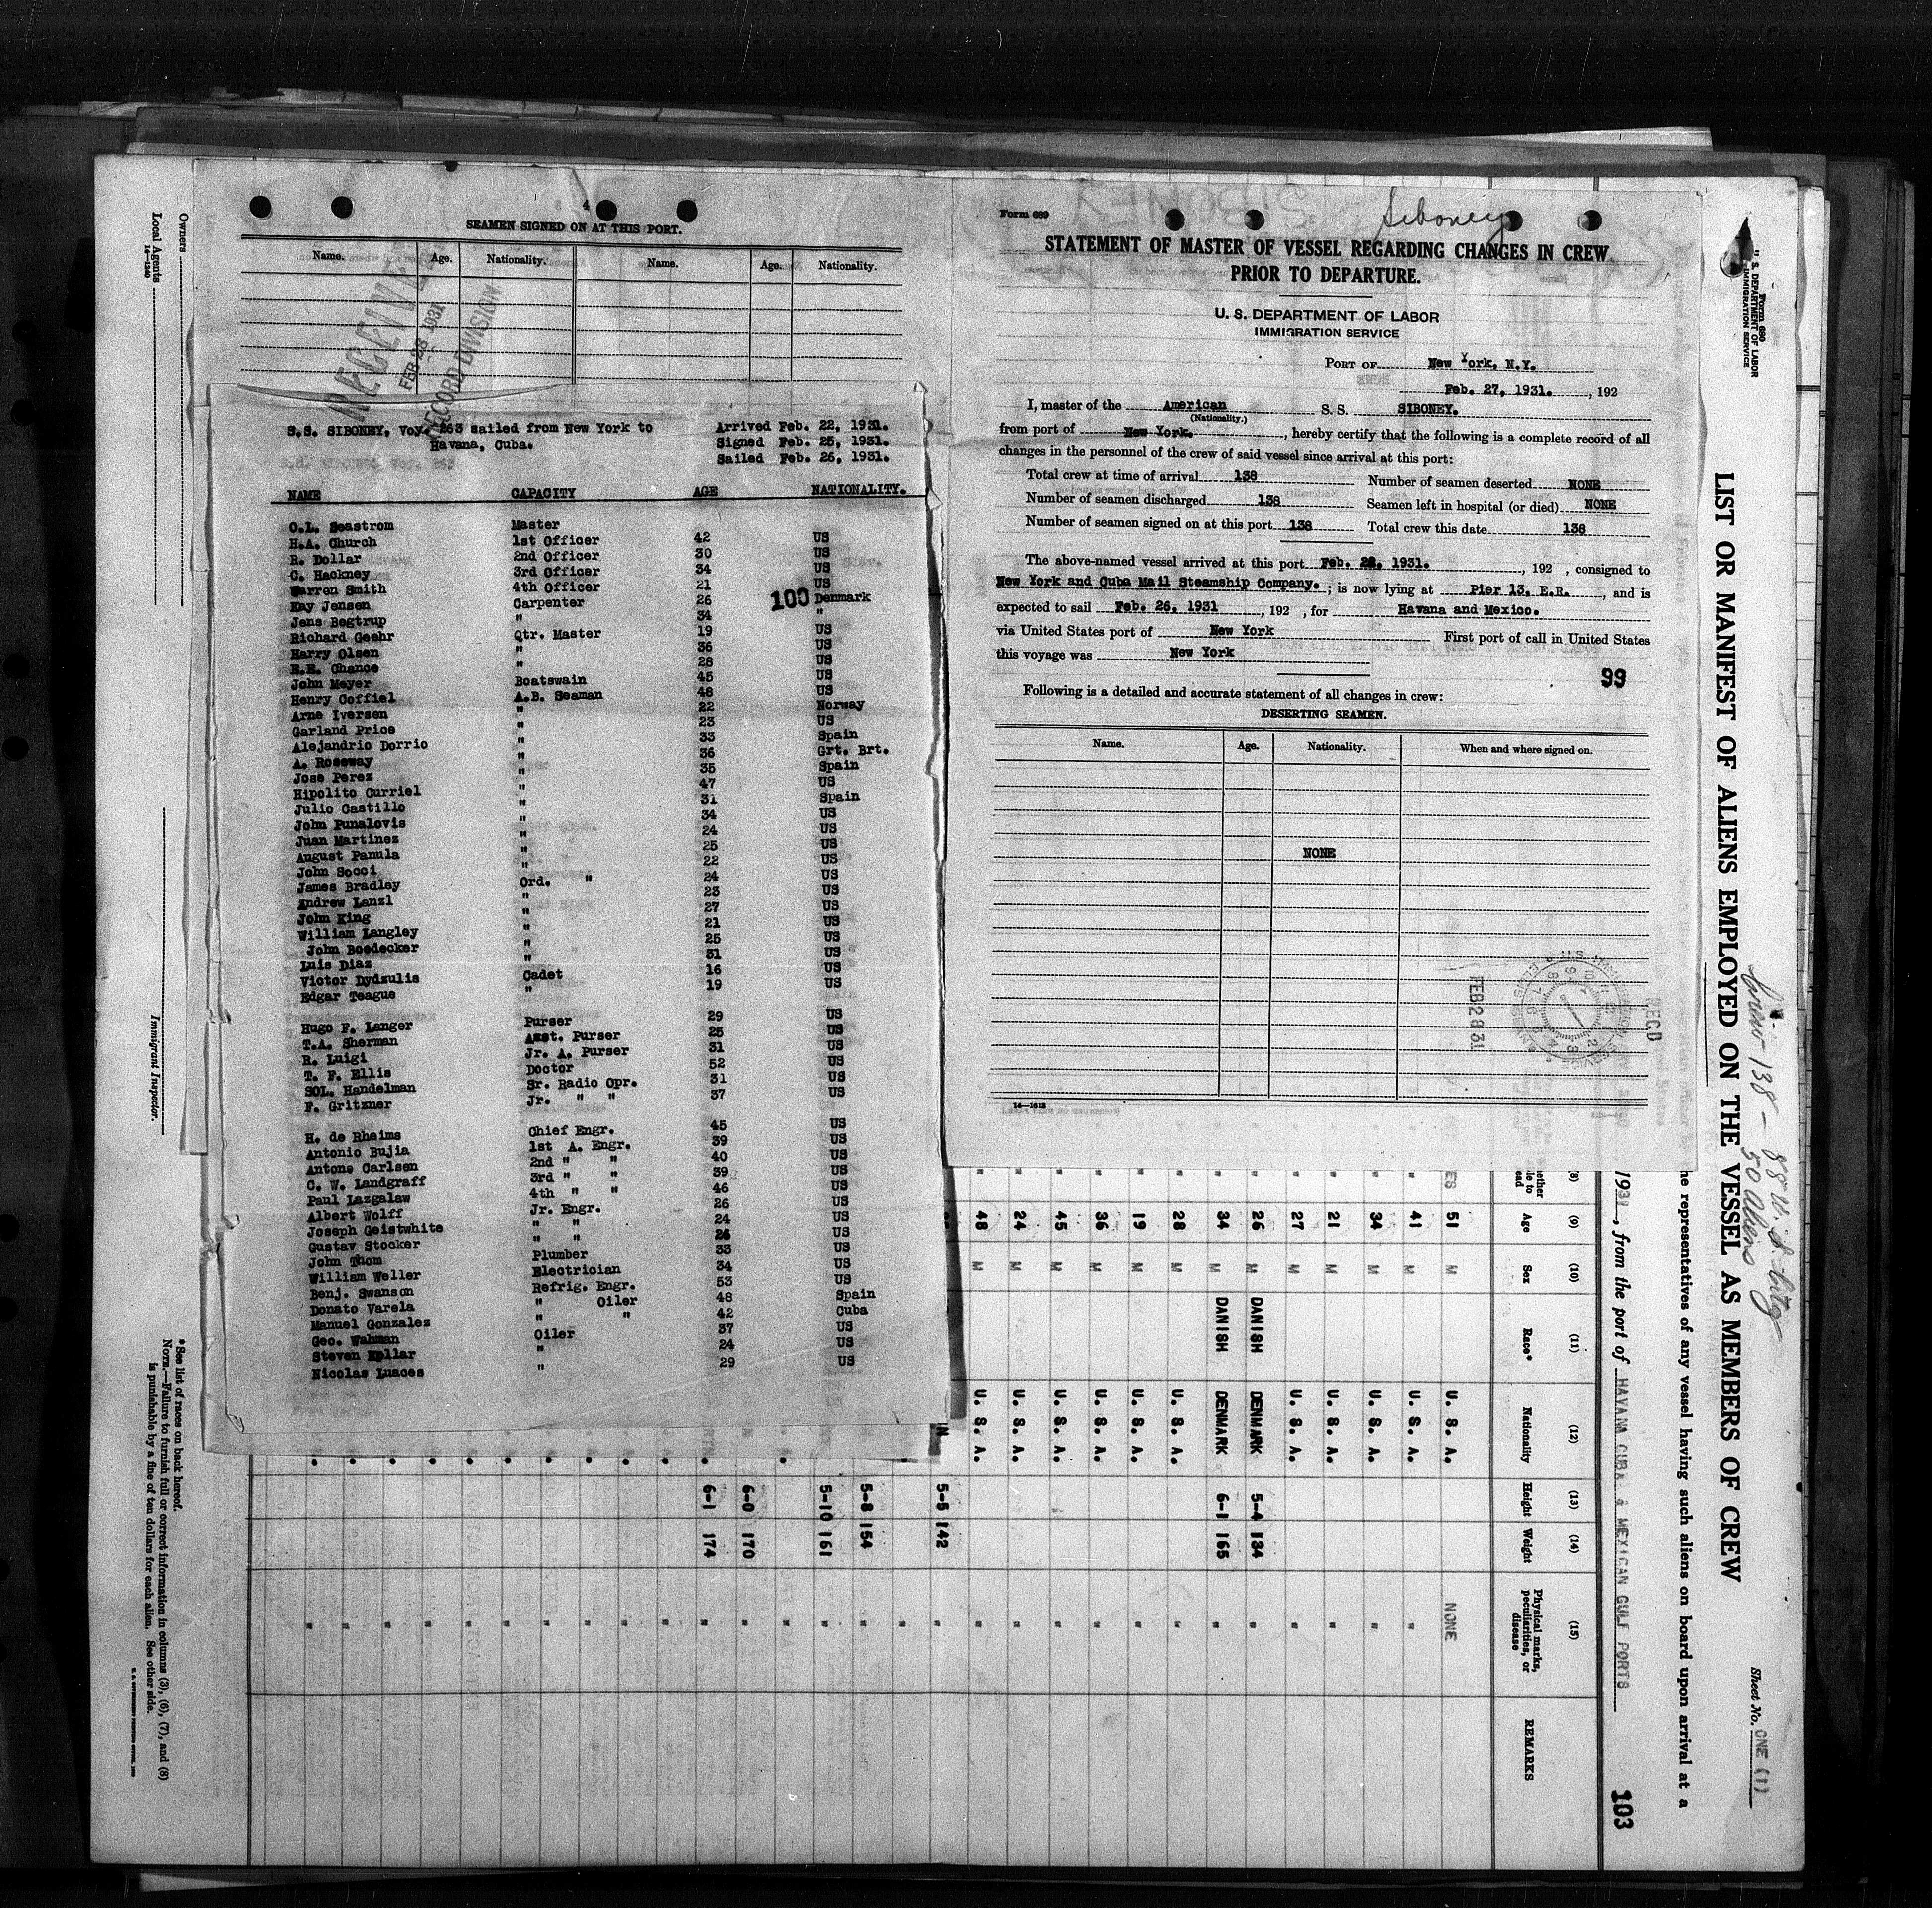 4
SEAMEN SIGNED ON AT THIS PORT.
Name. Age. Nationality. Name. Age. Nationality.
RECEIVED
FEB 28 1931
RECORD DIVISION
S.S. SIBONEY, Voy. 263 sailed from New York to
Havana, Cuba.
Arrived Feb. 22, 1931.
Signed Feb. 25, 1931.
Sailed Feb. 26, 1931.
NAME CAPACITY AGE NATIONALITY.
O.L. Seastrom Master
H.A. Church 1st Officer 42 US
R. Dollar 2nd Officer 30 US
C. Hackney 3rd Officer 34 US
Warren Smith 4th Officer 21 US
Kay Jensen Carpenter 26 100 Denmark
Jens Begtrup " 34 "
Richard Geehr Qtr. Master 19 US
Harry Olsen " 36 US
E.E. Chance " 28 US
John Meyer Boatswain 45 US
Henry Coffiel A.B. Seaman 48 US
Arne Iversen " 22 Norway
Garland Price " 23 US
Alejandrio Dorrio " 33 Spain
A. Roseway " 36 Grt. Brt.
Jose Perez " 35 Spain
Hipolito Curriel " 47 US
Julio Castillo " 31 Spain
John Punalovis " 34 US
Juan Martinez " 24 US
August Panula " 25 US
John Socci " 22 US
James Bradley Ord. " 24 US
Andrew Lanzl " 23 US
John King " 27 US
William Langley " 21 US
John Boedecker " 25 US
Luis Diaz " 31 US
Victor Dydzulis Cadet 16 US
Edgar Teague " 19 US
Hugo F. Langer Purser 29 US
T.A. Sherman Asst. Purser 25 US
R. Luigi Jr. A. Purser 31 US
T. F. Ellis Doctor 52 US
SOL. Handelman Sr. Radio Opr. 31 US
F. Gritzner Jr. " " 37 US
H. de Rheims Chief Engr. 45 US
Antonio Bujia 1st A. Engr. 39 US
Antone Carlsen 2nd " " 40 US
C. W. Landgraff 3rd " " 39 US
Paul Lazgalaw 4th " " 46 US
Albert Wolff Jr. Engr. 26 US
Joseph Geistwhite " " 24 US
Gustav Stocker " " 26 US
John Thom Plumber 33 US
William Weller Electrician 34 US
Benj. Swanson Refrig. Engr. 53 US
Donato Varela " Oiler 48 Spain
Manuel Gonzalez " " 42 Cuba
Geo. Wahman Oiler 37 US
Steven Kollar " 24 US
Nicolas Luaces " 29 US
Form 689
Siboney
STATEMENT OF MASTER OF VESSEL REGARDING CHANGES IN CREW
PRIOR TO DEPARTURE.
U. S. DEPARTMENT OF LABOR
IMMIGRATION SERVICE
PORT OF New York, N.Y.
Feb. 27, 1931. , 192
I, master of the American S. S. SIBONEY.
(Nationality.)
from port of New York. , hereby certify that the following is a complete record of all
changes in the personnel of the crew of said vessel since arrival at this port:
Total crew at time of arrival 138 Number of seamen deserted NONE
Number of seamen discharged 138 Seamen left in hospital (or died) NONE
Number of seamen signed on at this port 138 Total crew this date 138
The above-named vessel arrived at this port Feb. 22, 1931. , 192 , consigned to
New York and Cuba Mail Steamship Company. ; is now lying at Pier 13, E.R. , and is
expected to sail Feb. 26, 1931 , 192 , for Havana and Mexico.
via United States port of New York First port of call in United States
this voyage was New York
99
Following is a detailed and accurate statement of all changes in crew:
DESERTING SEAMEN.
Name. Age. Nationality. When and where signed on.
NONE
FEB 28 31
RECD
14—1613
Form 680
U. S. DEPARTMENT OF LABOR
IMMIGRATION SERVICE
LIST OR MANIFEST OF ALIENS EMPLOYED ON THE VESSEL AS MEMBERS OF CREW
Crew-138- 88 U.S. Citz
50 Aliens
Sheet No. ONE (1)
he representatives of any vessel having such aliens on board upon arrival at a
1931, from the port of HAVANA CUBA & MEXICAN GULF PORTS
103
(8) (9) (10) (11) (12) (13) (14) (15)
Age Sex Race* Nationality Height Weight Physical marks, peculiarities, or disease REMARKS
51 M U. S. A. NONE
41 M U. S. A. "
34 M U. S. A. "
21 M U. S. A. "
27 M U. S. A. "
26 M DANISH DENMARK 5-4 134 "
34 M DANISH DENMARK 6-1 165 "
28 M U. S. A. "
19 M U. S. A. "
36 M U. S. A. "
45 M U. S. A. "
24 M U. S. A. "
48 M U. S. A. "
5-5 142 "
5-8 154 "
5-10 161 "
6-0 170 "
6-1 174 "
Owners
Local Agents
14—1240
Immigrant Inspector.
*See list of races on back hereof.
NOTE.—Failure to furnish full or correct information in columns (3), (6), (7), and (8)
is punishable by a fine of ten dollars for each alien. See other side.